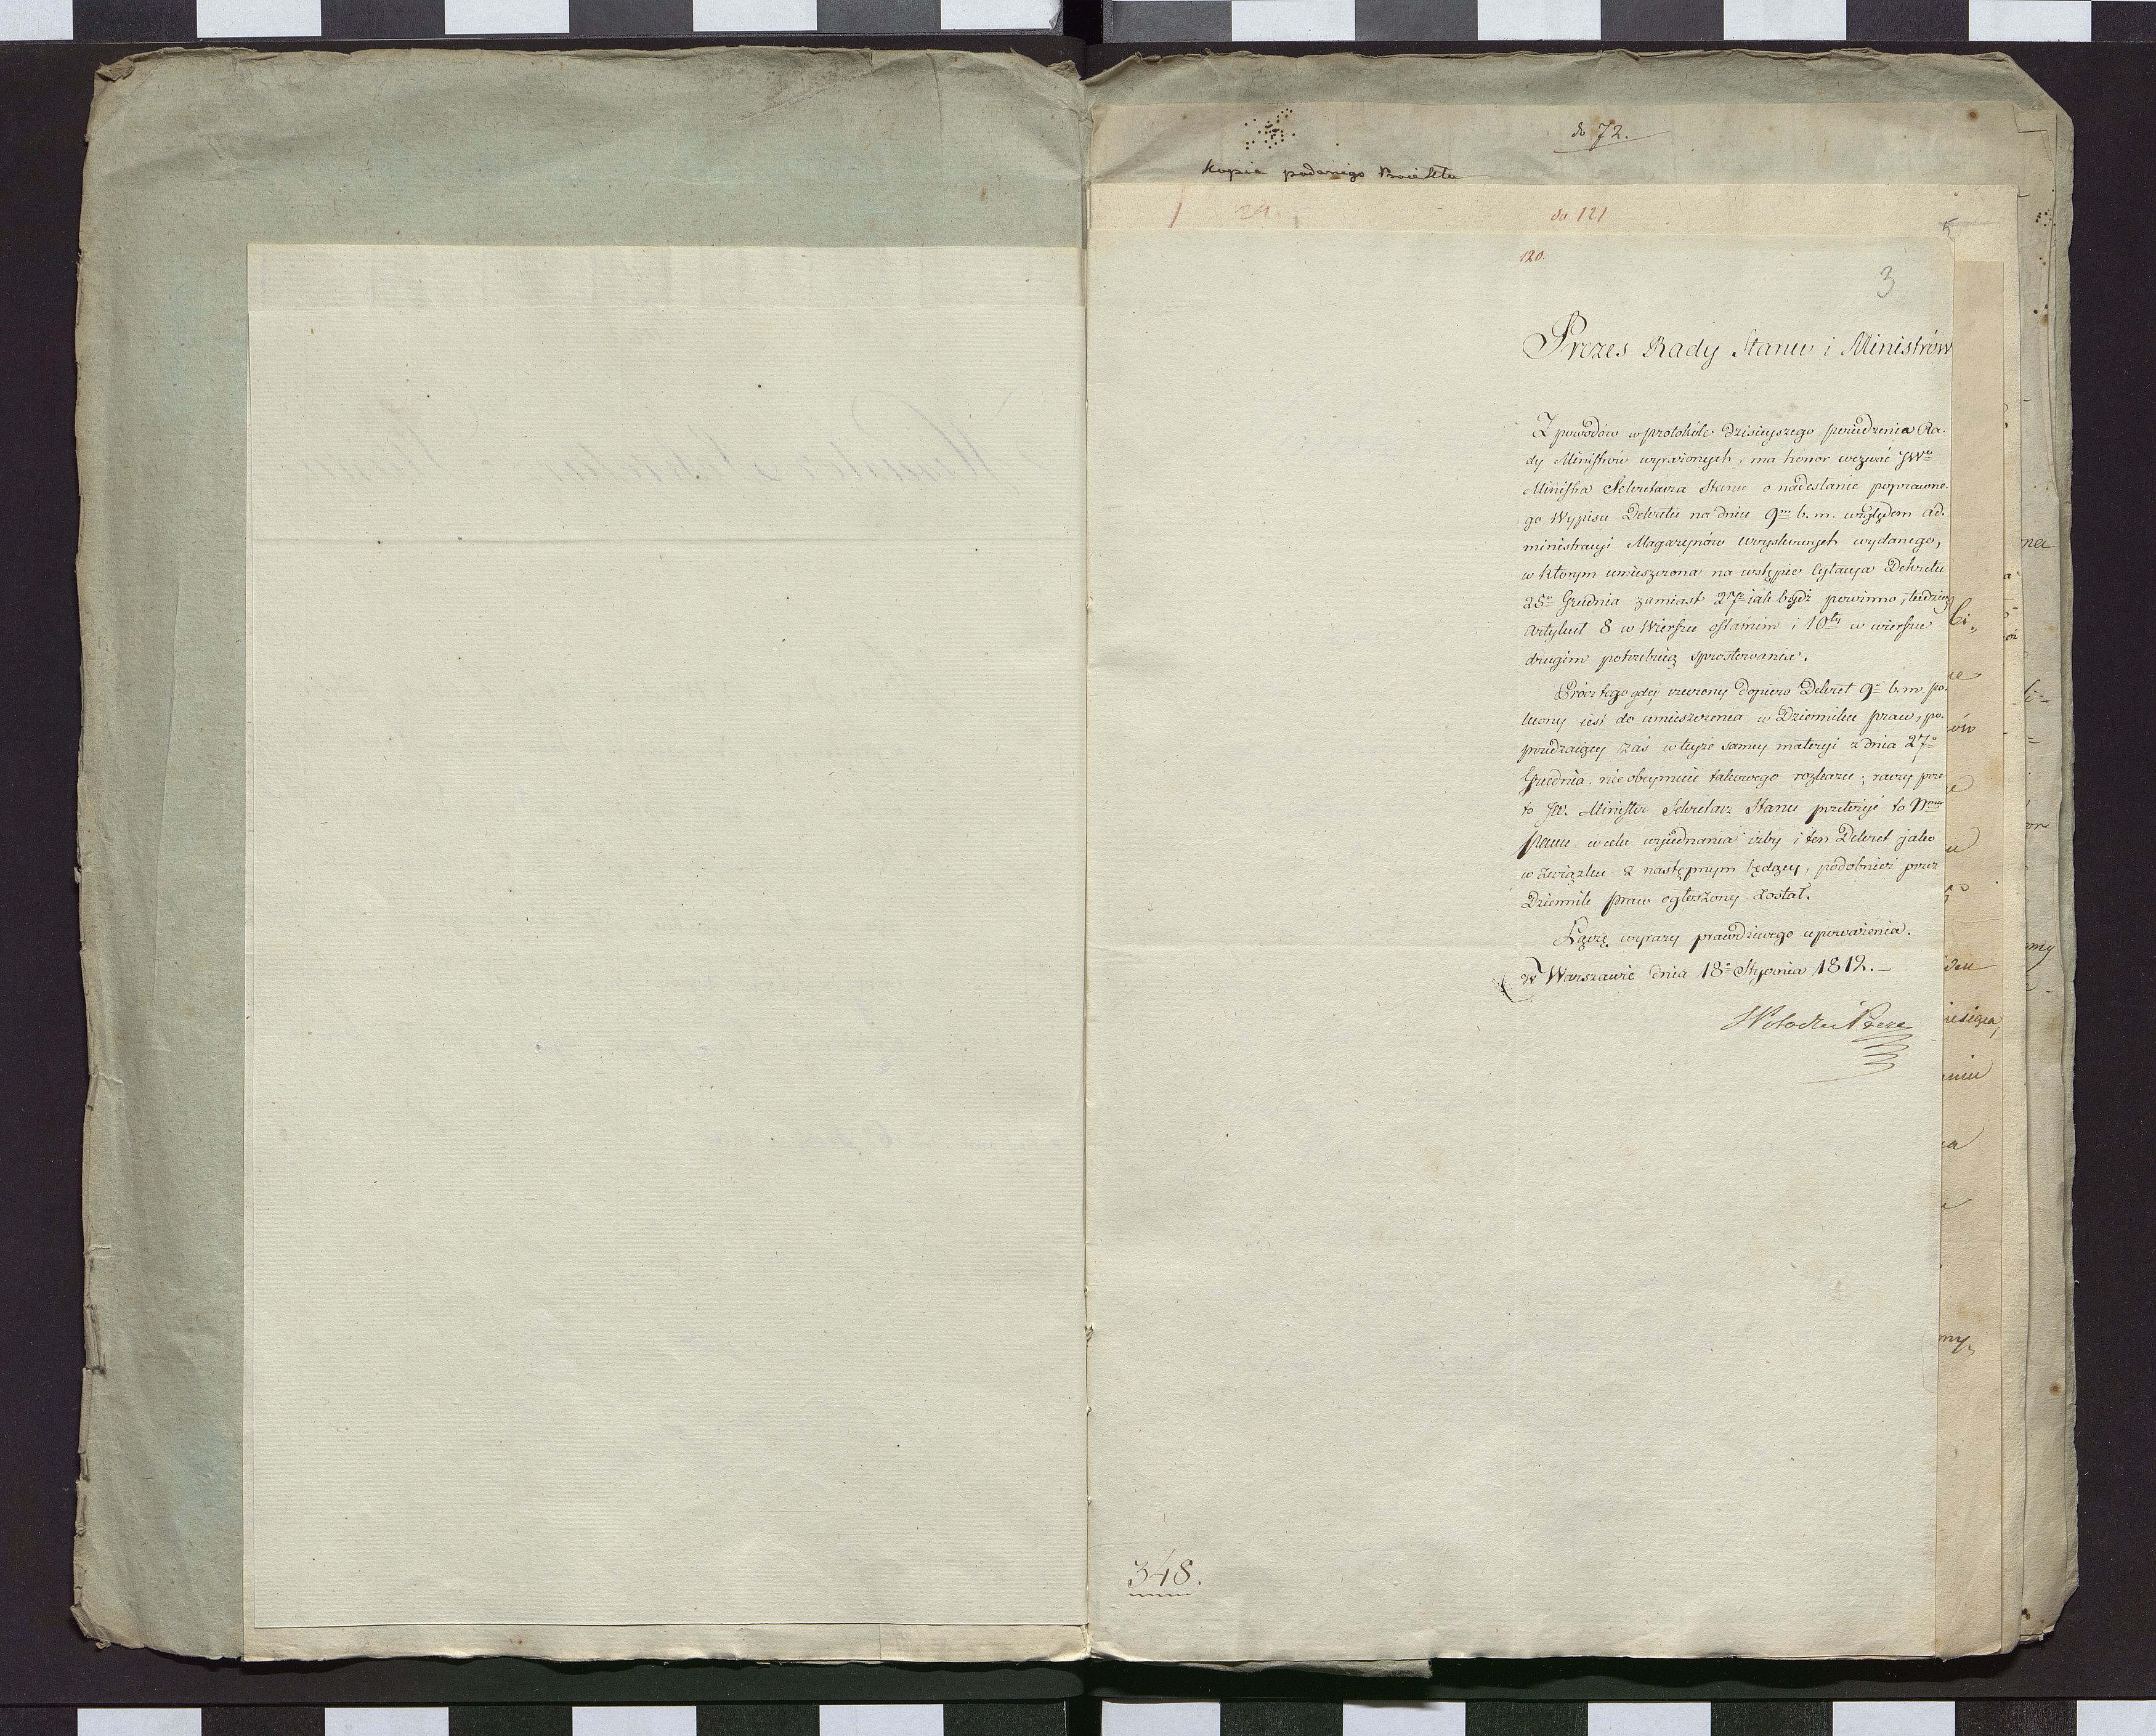 do 72.
Kopia podanego
do 121
120.
3
Prezes Rady Stanu i Ministrów
Z powodów w protokóle dzisieyszego posiedzenia Ra-
dy Ministrów wyrażonych, ma honor wezwać JWo
Ministra Sekretarza Stanu o nadesłanie poprawne-
go Wypisu Dekretu na dniu 9m b. m. względem ad-
ministracyi Magazynów wydanego,
w którym umieszczona na wstępie Cytacya Dekretu
25o Grudnia zamiast 27o iak bydź powinno, tudzież
Artykuł 8 w Wierszu ostatnim i 10ty w wierszu
drugim potrzebuią sprostowania.
Prócz tego gdy rzeczony dopiero Dekret 9o b. m. po-
lecony iest do umieszczenia w Dzienniku praw, po-
przedzaiący zaś w teyże samey materyi z dnia 27o
Grudnia nie obeymuie takowego rozkazu; raczy prze-
to JW. Minister Sekretarz Stanu przełożyć to Nmu
Panu w celu wyiednania iżby i ten Dekret jako
w związku z następnym będący, podobnież przez
Dziennik praw ogłoszony został.
Łączę wyrazy prawdziwego upoważenia.
w Warszawie dnia 18o Stycznia 1812.
348.